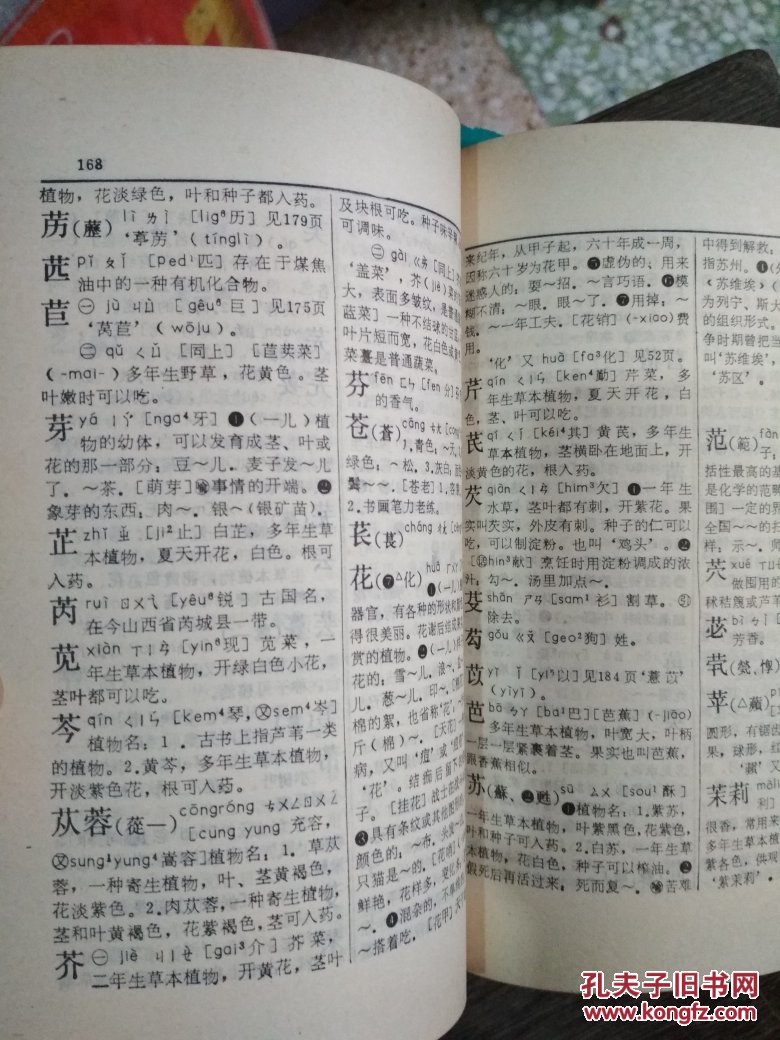 168
植物，花淡绿色，叶和种子都入药。
苈(藶) lì ㄌㄧˋ [lig⁶历] 见179页
‘葶苈’(tínglì)。
苉 pǐ ㄆㄧˇ [ped¹匹] 存在于煤焦
油中的一种有机化合物。
苣 ㊀ jù ㄐㄩˋ [gêu⁶巨] 见175页
‘莴苣’(wōju)。
㊁ qǔ ㄑㄩˇ [同上] [苣荬菜]
(-mai-) 多年生野草，花黄色。茎
叶嫩时可以吃。
芽 yá ㄧㄚˊ [nga⁴牙] ❶(一儿)植
物的幼体，可以发育成茎、叶或
花的那一部分：豆～儿。麦子发～儿
了。～茶。[萌芽]㊗事情的开端。❷
象芽的东西：肉～。银～(银矿苗)。
芷 zhǐ ㄓˇ [ji²止] 白芷，多年生草
本植物，夏天开花，白色。根可
入药。
芮 ruì ㄖㄨㄟˋ [yêu⁶锐] 古国名，
在今山西省芮城县一带。
苋 xiàn ㄒㄧㄢˋ [yin⁶现] 苋菜，一
年生草本植物，开绿白色小花，
茎叶都可以吃。
芩 qín ㄑㄧㄣˊ [kem⁴琴，㊋sem⁴岑]
植物名：1．古书上指芦苇一类
的植物。2.黄芩，多年生草本植物，
开淡紫色花，根入药。
苁蓉(蓯—) cōngróng ㄘㄨㄥㄖㄨㄥˊ
[cung yung 充容，
㊋sung¹yung⁴嵩容]植物名：1．草苁
蓉，一种寄生植物，叶、茎黄褐色，
花淡紫色。2.肉苁蓉，一种寄生植物，
茎和叶黄褐色，花紫褐色，茎可入药。
芥 ㊀ jiè ㄐㄧㄝˋ [gai³介] 芥菜，
二年生草本植物，开黄花，茎叶
及块根可吃。种子味辛辣
可调味。
㊁ gài ㄍㄞˋ [同上]
‘盖菜’，芥(jiè)菜的
大，表面多皱纹，是普通
蓝菜] 一种不结球的甘蓝
叶片短而宽，花白色或黄
菜薹是普通蔬菜。
芬 fēn ㄈㄣ [fen 分]
的香气。
苍(蒼) cāng ㄘㄤ
绿色：～松。3.灰白
鬓～～。[苍老]1.
2.书画笔力老练。
苌(萇) cháng ㄔㄤˊ
花(❼△化) huā ㄏㄨㄚ
❶(一儿)
器官，有各种的形状和颜
得很美丽。花谢后结成
赏的植物。❷(一儿)样
花的：雪～儿。浪～
儿。葱～儿。印～。[棉
棉的絮，也省称‘花’
斤(棉)～。[天花]
病，又叫‘痘’或‘痘
‘花’。结痂后留下
子。[挂花]战士在战
❸具有条纹或其他图形
颜色的：～布。头发～
只猫是～的。[花哨]
鲜艳，花样多，变化
～。❹混杂的，不单纯
～搭着吃。[花甲]天干
来纪年，从甲子起，六十年成一周，
因称六十岁为花甲。❺虚伪的，用来
迷惑人的：耍～招。～言巧语。❻模
糊不清：～眼。眼～了。❼用掉：～
钱。～一年工夫。[花销](-xiao)费
用。
‘化’又 huà [fa³化] 见52页。
芹 qín ㄑㄧㄣˊ [ken⁴勤] 芹菜，多
年生草本植物，夏天开花，白
色，茎、叶可以吃。
芪 qí ㄑㄧˊ [kéi⁴其] 黄芪，多年生
草本植物，茎横卧在地面上，开
淡黄色的花，根入药。
芡 qiàn ㄑㄧㄢˋ [him³欠] ❶一年生
水草，茎叶都有刺，开紫花。果
实叫芡实，外皮有刺。种子的仁可以
吃，可以制淀粉。也叫‘鸡头’。❷
[hin³献] 烹饪时用淀粉调成的浓
汁：勾～。汤里加点～。
芟 shān ㄕㄢ [sam¹衫] 割草。㊗
除去。
芶 gǒu ㄍㄡˇ [geo²狗] 姓。
苡 yǐ ㄧˇ [yi⁵以] 见184页‘薏苡’
(yìyǐ)。
芭 bā ㄅㄚ [ba¹巴] [芭蕉] (-jiāo)
多年生草本植物，叶宽大，叶柄
一层一层紧裹着茎。果实也叫芭蕉，
跟香蕉相似。
苏(蘇、❷甦) sū ㄙㄨ [sou¹酥]
❶植物名：1.紫苏，
一年生草本植物，叶紫黑色，花紫色，
叶和种子可入药。2.白苏，一年生草
本植物，花白色，种子可以榨油。❷
假死后再活过来：死而复～。㊗苦难
中得到解救：
指苏州。❹(外
(苏维埃)
为列宁、斯大
的组织形式。
争时期曾把当
叫‘苏维埃’
‘苏区’。
范(範)
子：
括性最高的基
是化学的范畴
围] 一定的界
全国～～的
样：示～。师
茓 xué ㄒㄩㄝˊ
做囤用的
秫秸篾或芦苇
苾 bì ㄅㄧˋ
芳香。
茕(煢、惸)
苹(△蘋)
圆形，有锯
果，球形，
‘蘋’又
茉莉
很香，常用来
多年生草本植
紫各色，供观
‘紫茉莉’。
孔夫子旧书网
www.kongfz.com